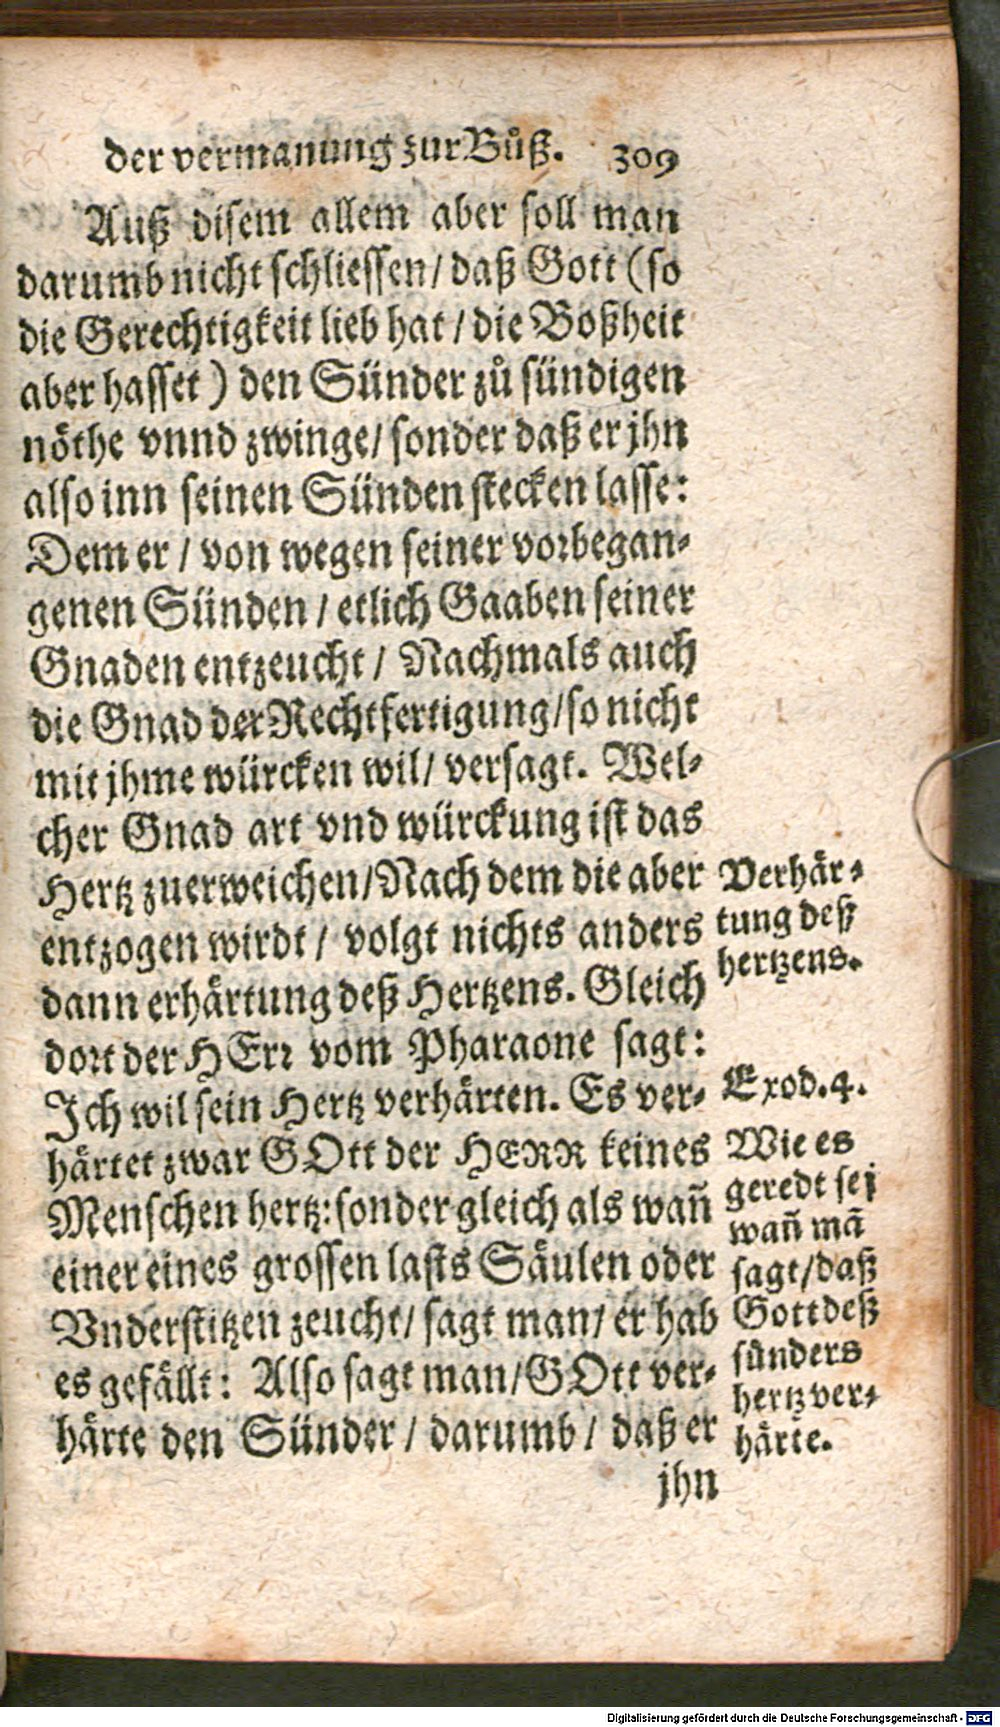 der vermanung zur Bůß. 309
Auß disem allem aber soll man
darumb nicht schliessen / daß Gott (so
die Gerechtigkeit lieb hat / die Boßheit
aber hasset) den Sünder zů sündigen
nöthe vnnd zwinge / sonder daß er jhn
also inn seinen Sünden stecken lasse:
Dem er / von wegen seiner vorbegan-
genen Sünden / etlich Gaaben seiner
Gnaden entzeucht / Nachmals auch
die Gnad der Rechtfertigung / so nicht
mit jhme würcken wil / versagt. Wel-
cher Gnad art vnd würckung ist das
Hertz zuerweichen / Nach dem die aber
entzogen wirdt / volgt nichts anders
dann erhärtung deß Hertzens. Gleich
dort der HErr vom Pharaone sagt:
Ich wil sein Hertz verhärten. Es ver-
härtet zwar GOtt der HERR keines
Menschen hertz: sonder gleich als wañ
einer eines grossen lasts Säulen oder
Vnderstitzen zeucht / sagt man / er hab
es gefällt: Also sagt man / GOtt ver-
härte den Sünder / darumb / daß er
jhn
Verhär-
tung deß
hertzens.
Exod. 4.
Wie es
geredt sej
wañ mã
sagt / daß
Gott deß
sünders
hertz ver-
härte.
Digitalisierung gefördert durch die Deutsche Forschungsgemeinschaft - DFG